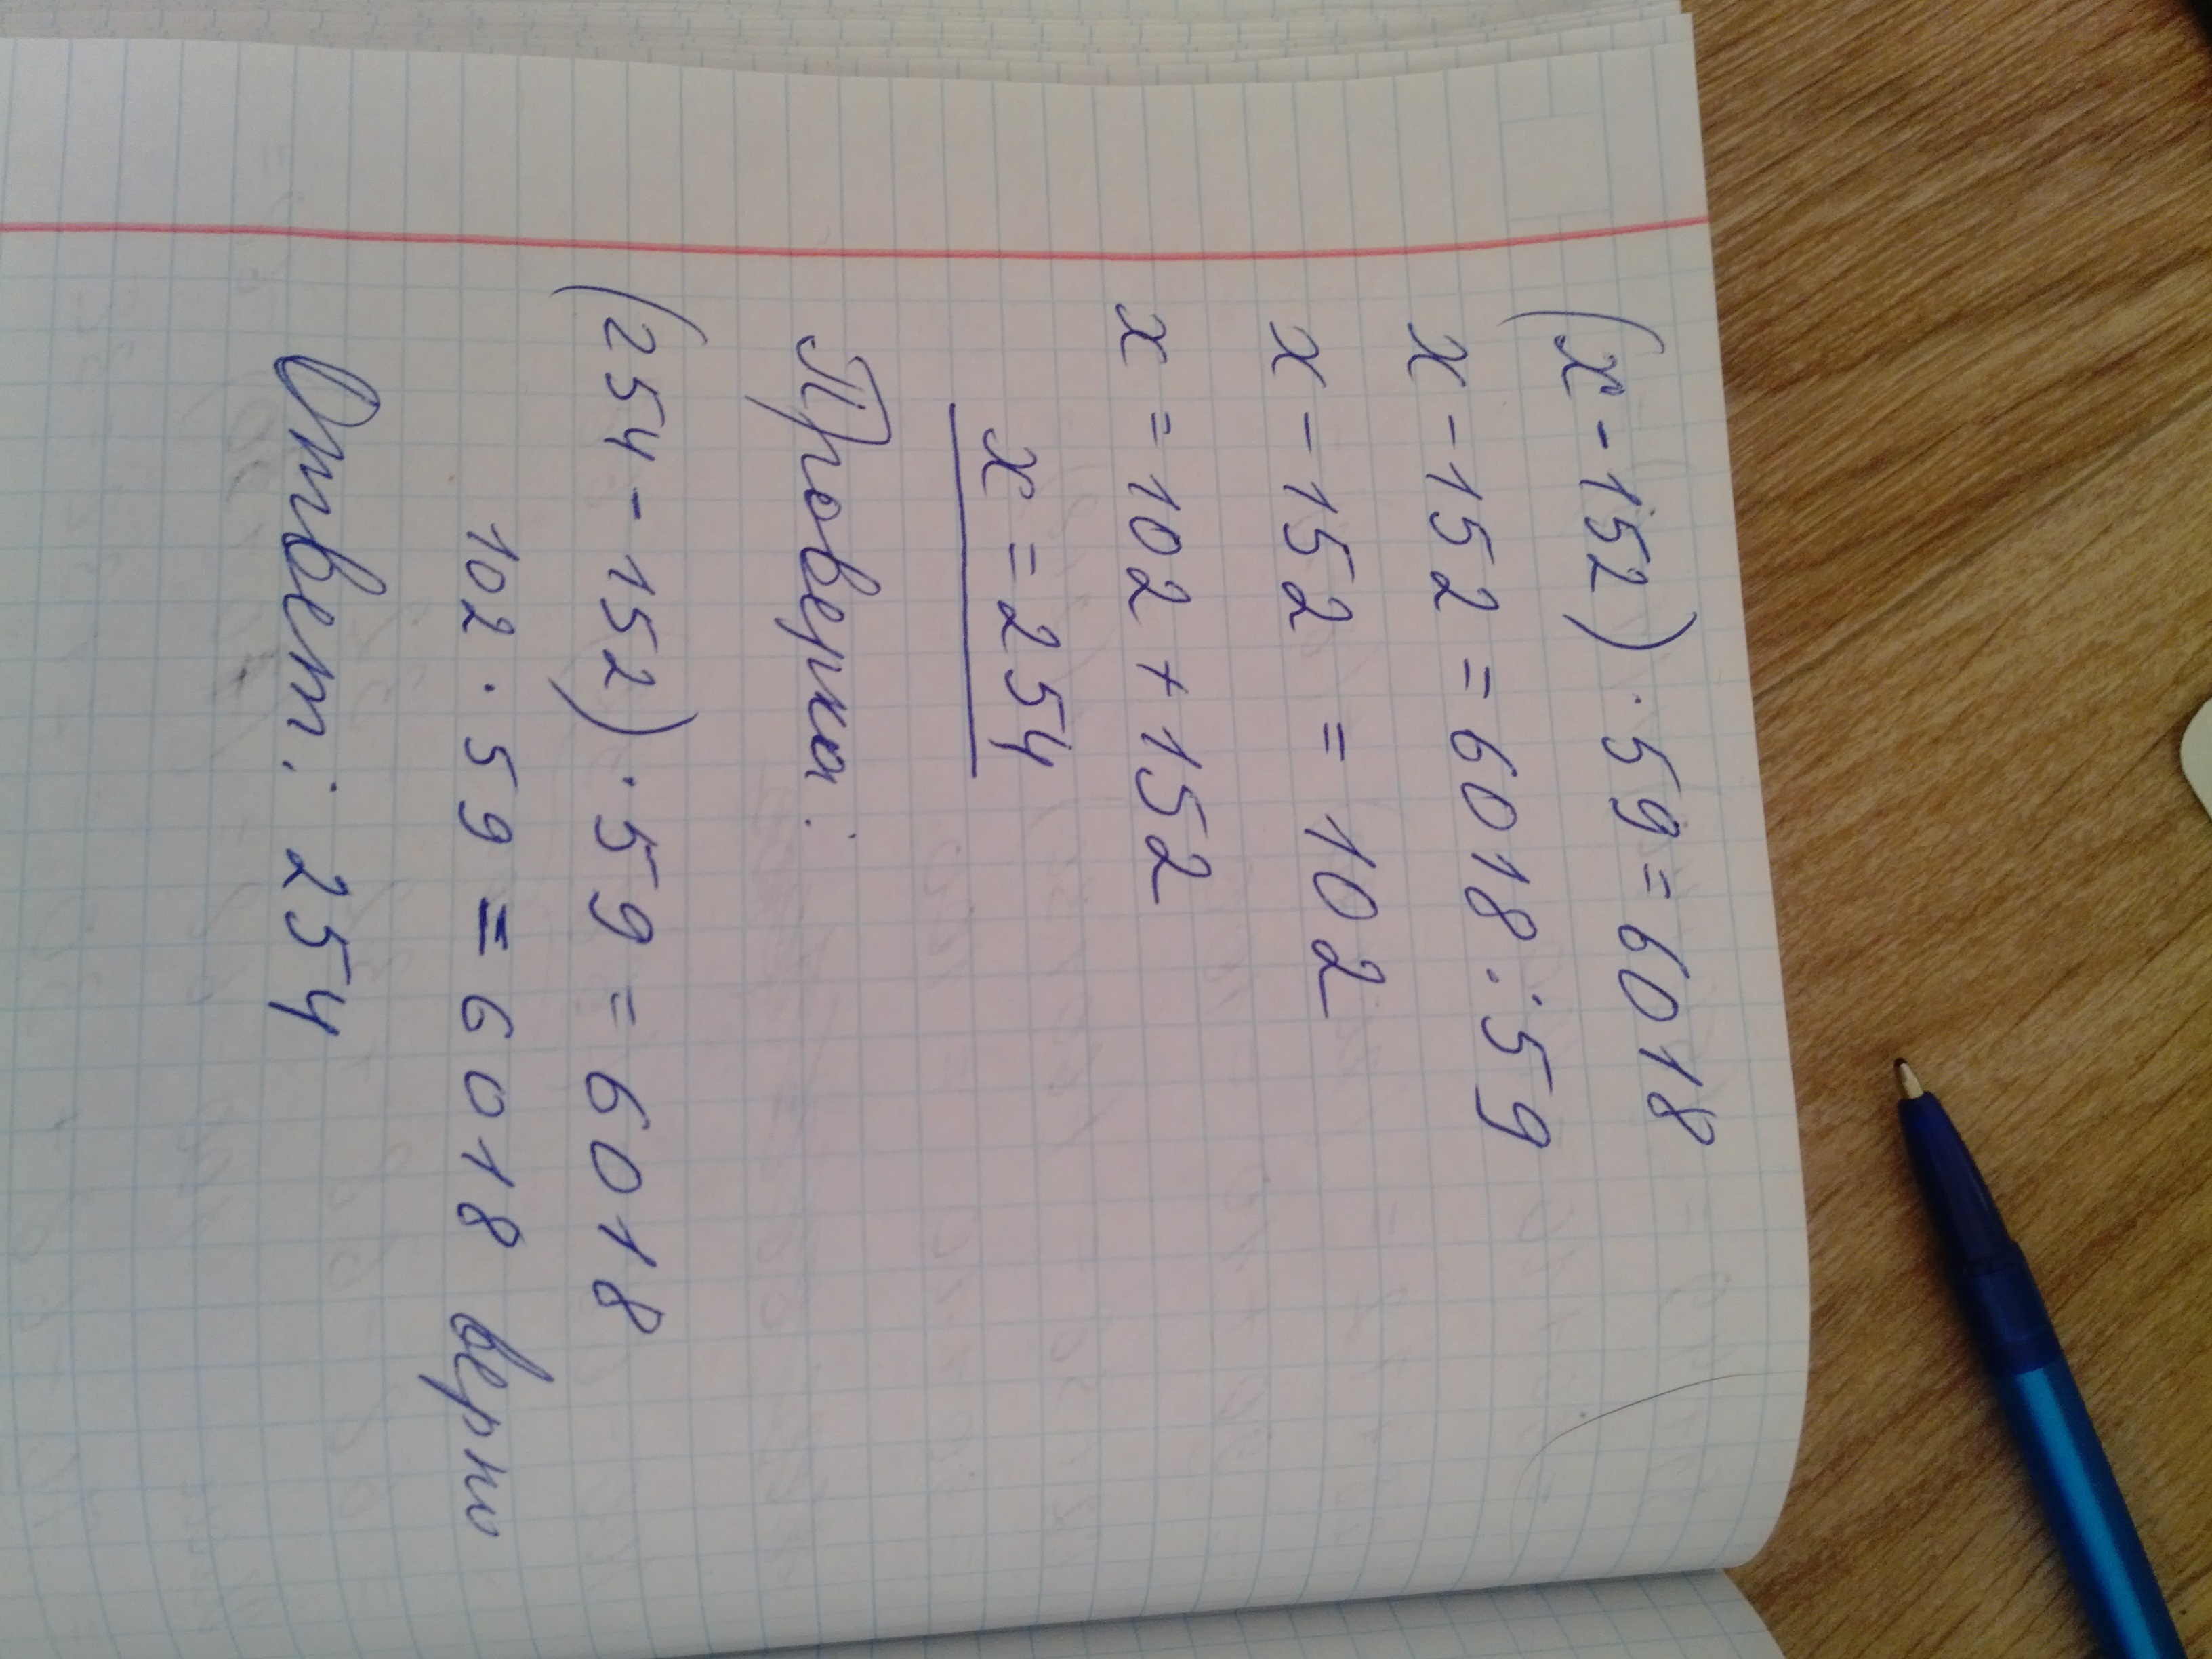 (x - 152) · 59 = 6018
x - 152 = 6018 : 59
x - 152 = 102
x = 102 + 152
x = 254
Проверка:
(254 - 152) · 59 = 6018
102 · 59 = 6018 верно
Ответ: 254